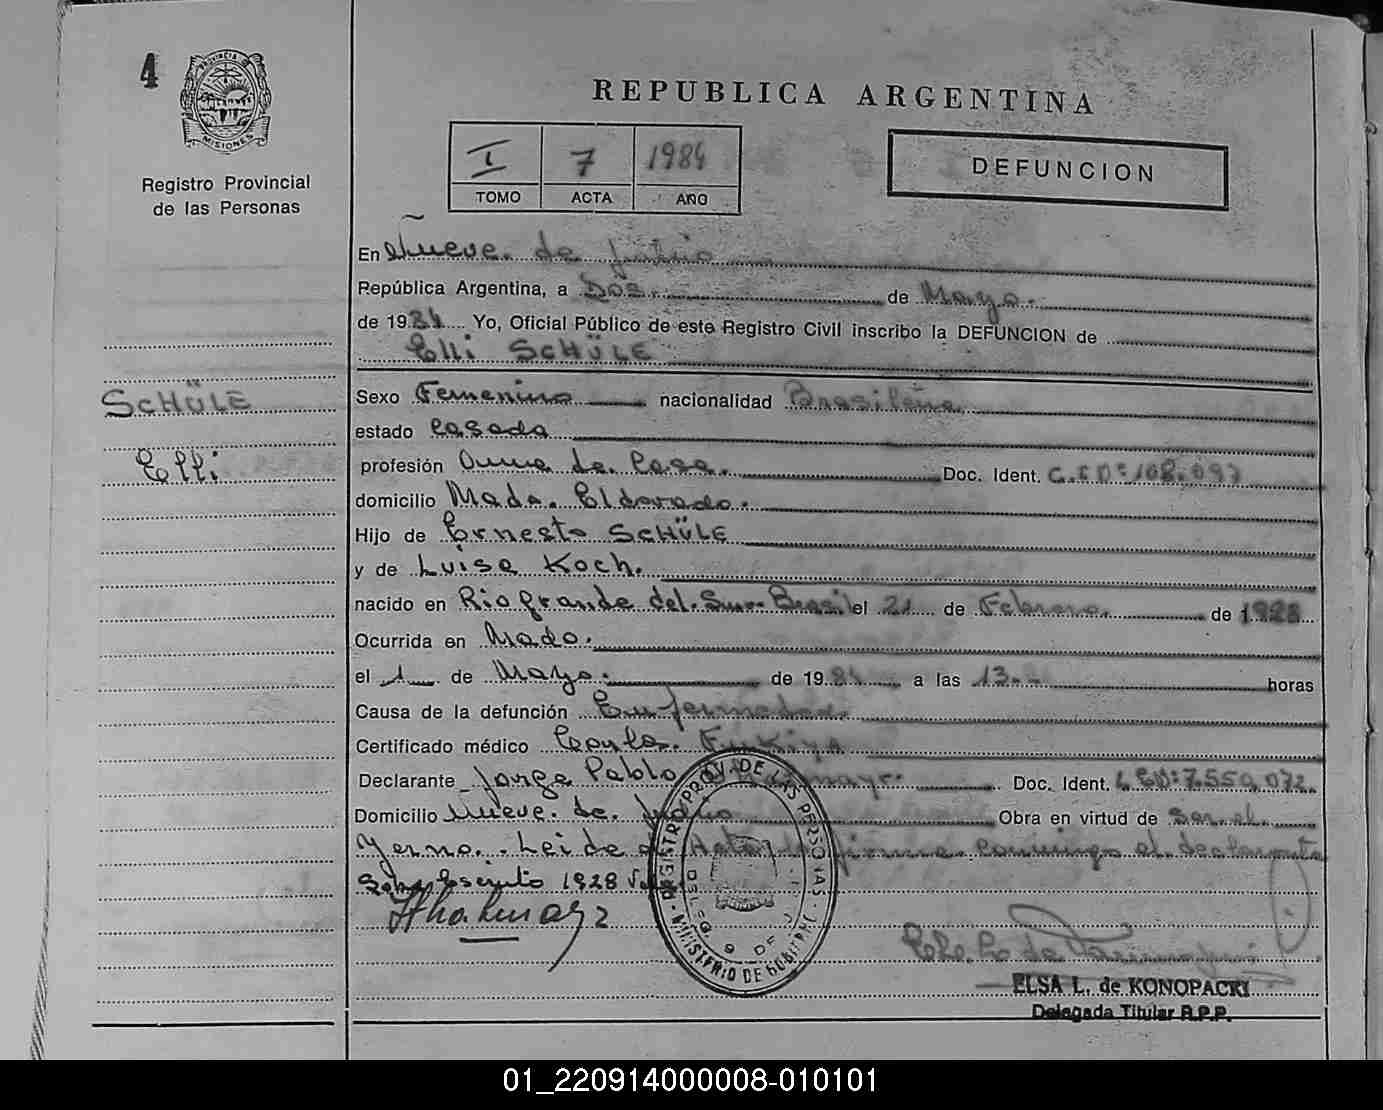 4
PROVINCIA DE
MISIONES
Registro Provincial
de las Personas
SCHÜLE
Elli
REPUBLICA ARGENTINA
I 7 1984
TOMO ACTA AÑO
DEFUNCION
En Nueve de Julio
República Argentina, a Dos de Mayo
de 1984 Yo, Oficial Público de este Registro Civil inscribo la DEFUNCION de
Elli SCHÜLE
Sexo Femenino nacionalidad Brasileña
estado Casada
profesión Ama de Casa. Doc. Ident.
domicilio Mado. Eldorado.
Hijo de Ernesto SCHÜLE
y de Luisa Koch.
nacido en Rio grande del Sur Brasil el 21 de Febrero de 1928
Ocurrida en Mado.
el 1 de Mayo de 1984 a las 13 horas
Causa de la defunción Enfermedad
Certificado médico Carlos
Declarante Jorge Pablo Doc. Ident. C.I.Nº: 7.550.072.
Domicilio Nueve de Julio Obra en virtud de Ser el
Yerno. Leida el Acta la firma conmigo el declarante
Sobre Escrito 1928 Vale
REGISTRO PROV. DE LAS PERSONAS
MINISTERIO DE GOBIERNO
DELEG. 9 DE J
ELSA L. de KONOPACKI
Delegada Titular R.P.P.
01_220914000008-010101